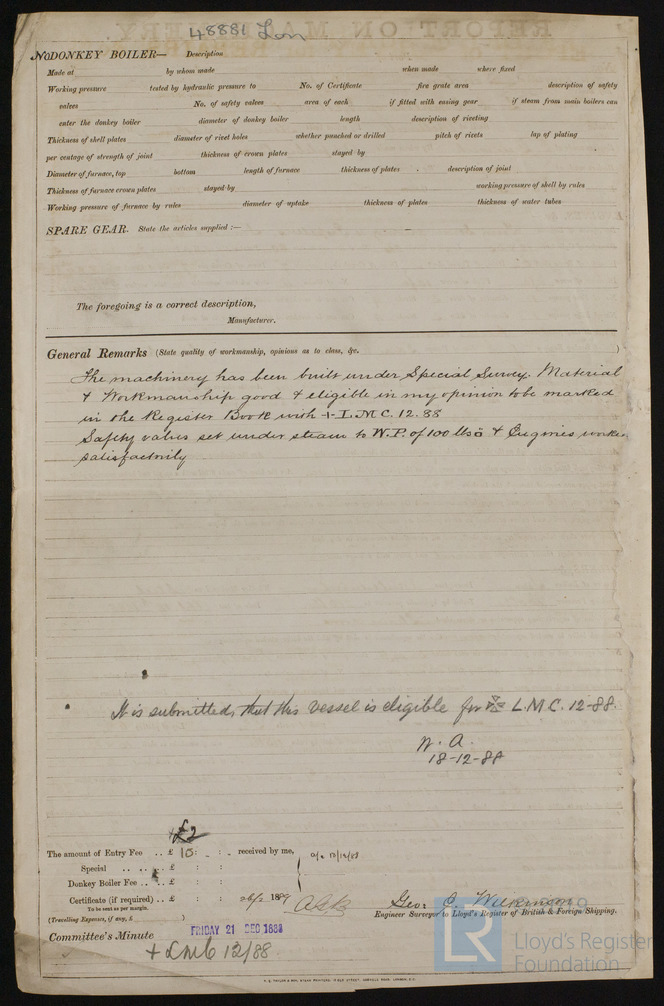 48881 Lon
No DONKEY BOILER— Description
Made at by whom made when made where fixed
Working pressure tested by hydraulic pressure to No. of Certificate fire grate area description of safety
valves No. of safety valves area of each if fitted with easing gear if steam from main boilers can
enter the donkey boiler diameter of donkey boiler length description of riveting
Thickness of shell plates diameter of rivet holes whether punched or drilled pitch of rivets lap of plating
per centage of strength of joint thickness of crown plates stayed by
Diameter of furnace, top bottom length of furnace thickness of plates description of joint
Thickness of furnace crown plates stayed by working pressure of shell by rules
Working pressure of furnace by rules diameter of uptake thickness of plates thickness of water tubes
SPARE GEAR. State the articles supplied :—
The foregoing is a correct description,
Manufacturer.
General Remarks (State quality of workmanship, opinions as to class, &c. )
The machinery has been built under Special Survey. Material
& Workmanship good & eligible in my opinion to be marked
in the Register Book with + L.M.C. 12.88
Safety valves set under steam to W.P. of 100 lbs & Engines worked
satisfactorily
It is submitted, that this vessel is eligible for L.M.C. 12-88.
W. A.
18-12-88
£2
The amount of Entry Fee .. £ 10 : - : - received by me,
Special .. .. £ : :
Donkey Boiler Fee .. £ : :
Certificate (if required) .. £ : : 18
To be sent as per margin.
(Travelling Expenses, if any, £ )
Geo. C. Wilkinson
Engineer Surveyor to Lloyd's Register of British & Foreign Shipping.
Committee's Minute FRIDAY 21 DEC 1888
+ LMC 12/88
LR
Lloyd's Register
Foundation